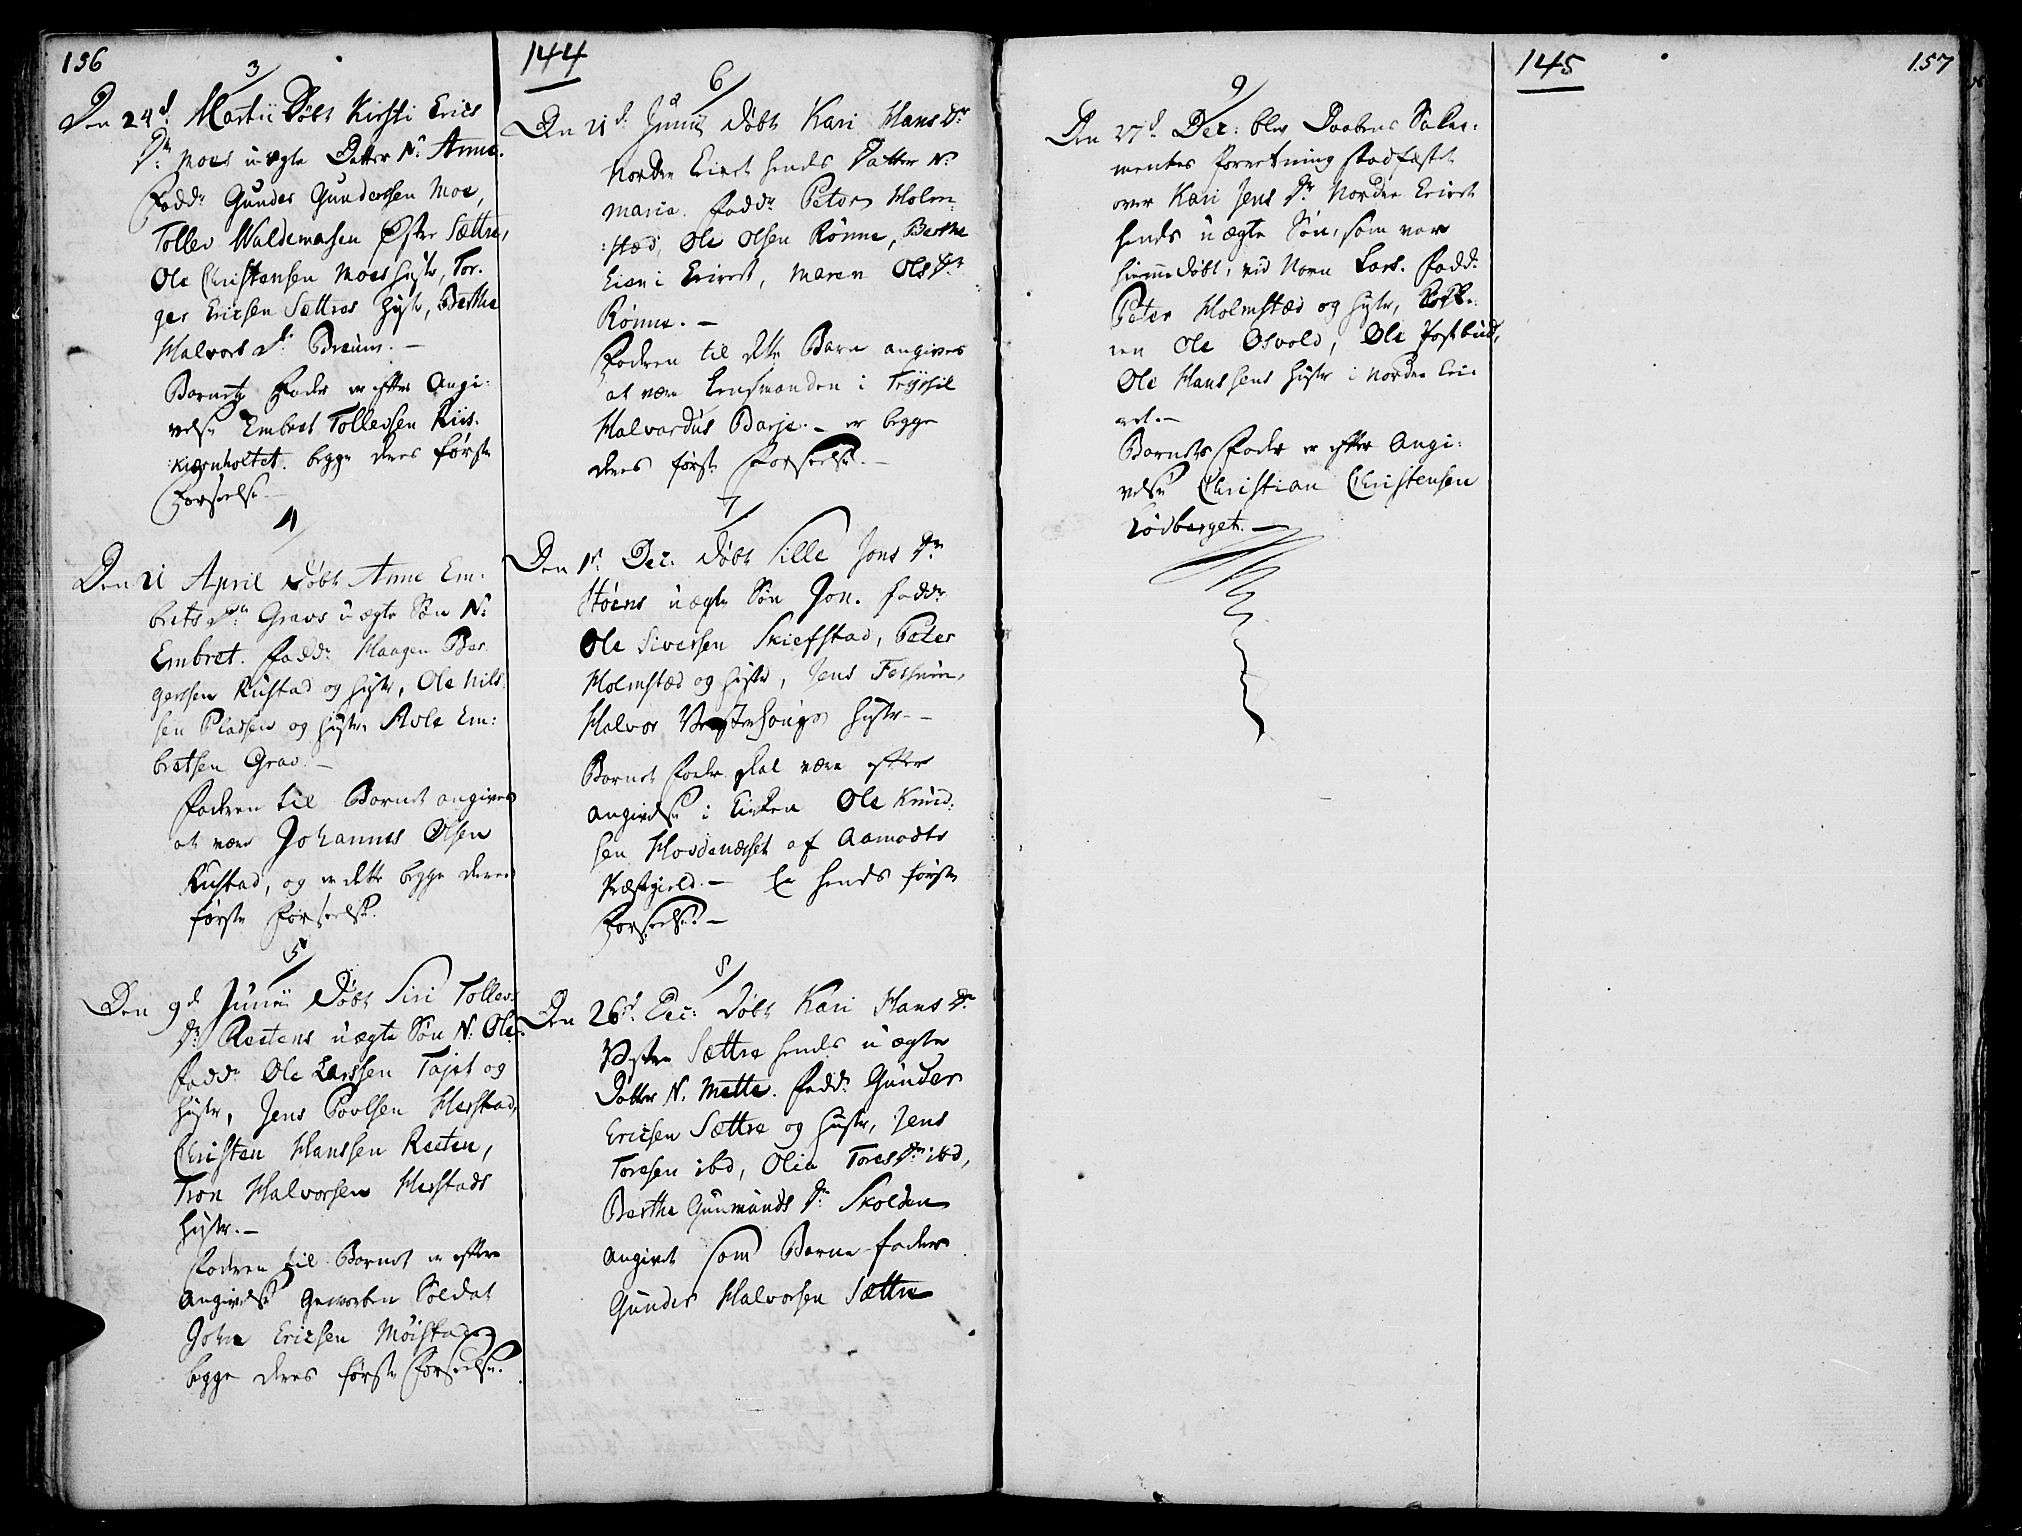 156
3
Den 24d. Martii Døbt Kirsti Erics
Dr. Moes uægte Datter N. Anne.
Fadd: Gunder Gundersen Moe,
Tollev Waldemarsen Øster Sættre,
Ole Christensen Moes Hustr, Tor-
ger Ericsen Sættres Hustr, Berthe
Halvors Dr. Bræum. —
Barnets Fader er efter Angi-
velse Embret Tollevsen Riis-
kiærnholtet. begge deres første
Forseelse. —
4
Den 21 April Døbt Anne Em-
brets Dr. Gravs uægte Søn N.
Embret. Fadd: Haagen Bør-
gersen Rustad og Hustr, Ole Nils-
sen Pladsen og Hustr Avle Em-
bretsen Grav. —
Faderen til Barnet angives
at være Johannes Olsen
Rustad, og er dette begge deres
første Forseelse.
5
Den 9d Junii Døbt Siri Tollev-
Dr. Rætens uægte Søn N. Ole
Fadd: Ole Larssen Tajet og
Hustr, Jens Povlsen Herstad,
Christen Hanssen Ræten,
Tron Halvorsen Herstads
Hustr. —
Faderen til Barnet er efter
Angivelse Geworben Soldat
John Ericsen Möistad
begge deres første Forseelse.
144
6
Den 21d. Junii Døbt Kari Hans Dr
Nordre Eiret hends Datter N.
Maria. Fadd: Peter Holm-
stad, Ole Olsen Rønne, Berthe
Eier i Eiret, Maren Ols Dr.
Rønne. —
Faderen til dette Barn angives
at være Lensmanden i Trysil
Halvardus Barje. — er begge
deres første Forseelse. —
7
Den 1d. Dec: Døbt Sille Jons Dr
Støens uægte Søn Jon. Fadd:
Ole Siversen Skiefstad, Peter
Holmstæd og Hustr, Jens Fossum,
Halvor Vestehougs Hustr. —
Barnets Fader skal være efter
Angivelse i Kirken Ole Knud-
sen Hovdenæsset af Aamodts
Præstgield. — Er hends første
Forseelse. —
8
Den 26d. Dec: Døbt Kari Hans Dr
Vester Sættre hends uægte
Datter N. Mette. Fadd: Gunder
Ericsen Sættre og Hustr, Jens
Toresen ibd, Olia Tores Dr. ibd,
Berthe Gunmunds Dr. Skolden
Angivet som Barne-fader
Gunder Halvorsen Sættre
9
Den 27d. Dec: blev Daabens Sakra-
mentes Forretning stadfæstet
over Kari Jens Dr. Nordre Eirets
hends uægte Søn, som var
hiemmedøbt, ved Navn Lars. Fadd:
Peter Holmstæd og Hustr,
Ole Osvold, Ole Postbud,
Ole Hanssens Hustr i Nordre Ei-
ret. —
Barnets Fader er efter Angi-
velse Christian Christensen
Lødberget. —
145
157